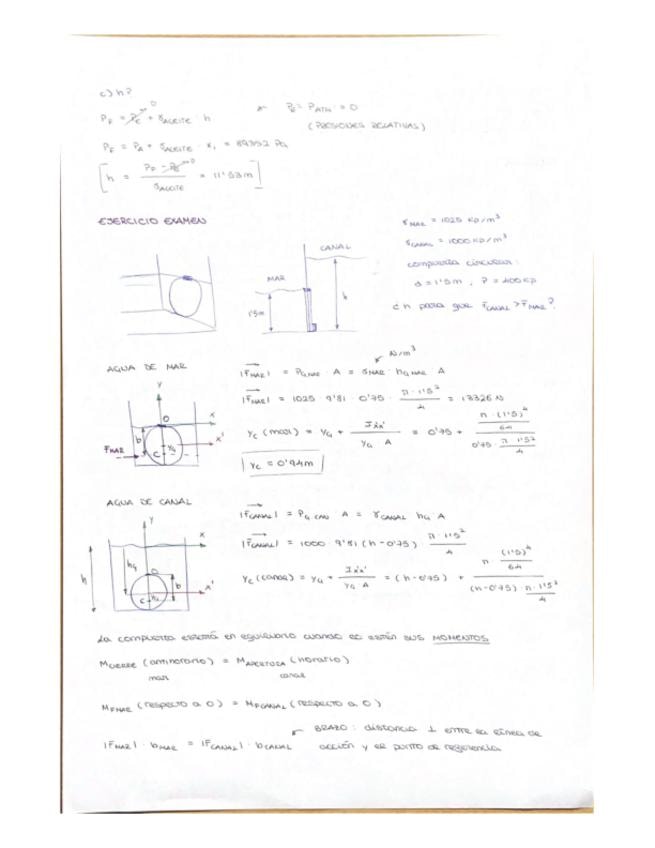 c) h?
P_F = P_E^{=0} + γ_ACEITE · h
P_E = P_ATM = 0
(PRESIONES RELATIVAS)
P_F = P_A + γ_ACEITE · x_1 = 89352 Pa
[h = (P_F - P_E^{=0}) / γ_ACEITE = 11'53 m]
EJERCICIO EXAMEN
γ_MAR = 1025 Kp/m³
γ_CANAL = 1000 Kp/m³
compuerta circular:
d = 1'5m, P = 400 Kp
¿h para que F_CANAL > F_MAR?
CANAL
MAR
1'5m
h
AGUA DE MAR
N/m³
|F_MAR| = P_G MAR · A = γ_MAR · h_G MAR A
|F_MAR| = 1025 · 9'81 · 0'75 · (π · 1'5²)/4 = 13326 N
y_c (mar) = y_G + I_xx' / (y_G · A) = 0'75 + (π · (1'5)⁴/64) / (0'75 · π · 1'5²/4)
y_c = 0'94m
y
O
x
b
x'
y_G
C
F_MAR
AGUA DE CANAL
|F_CANAL| = P_G CAN A = γ_CANAL h_G A
|F_CANAL| = 1000 · 9'81 (h-0'75) · (π · 1'5²)/4
y_c (canal) = y_G + I_xx' / (y_G · A) = (h-0'75) + (π · (1'5)⁴/64) / ((h-0'75) · π · 1'5²/4)
y
x
h
h_G
O
b
x'
C
y_G
La compuerta estará en equilibrio cuando lo estén sus MOMENTOS
M_CIERRE (antihorario) = M_APERTURA (horario)
mar
canal
M_FMAR (respecto a O) = M_FCANAL (respecto a O)
BRAZO: distancia ⊥ entre la línea de
|F_MAR| · b_MAR = |F_CANAL| · b_CANAL
acción y el punto de referencia